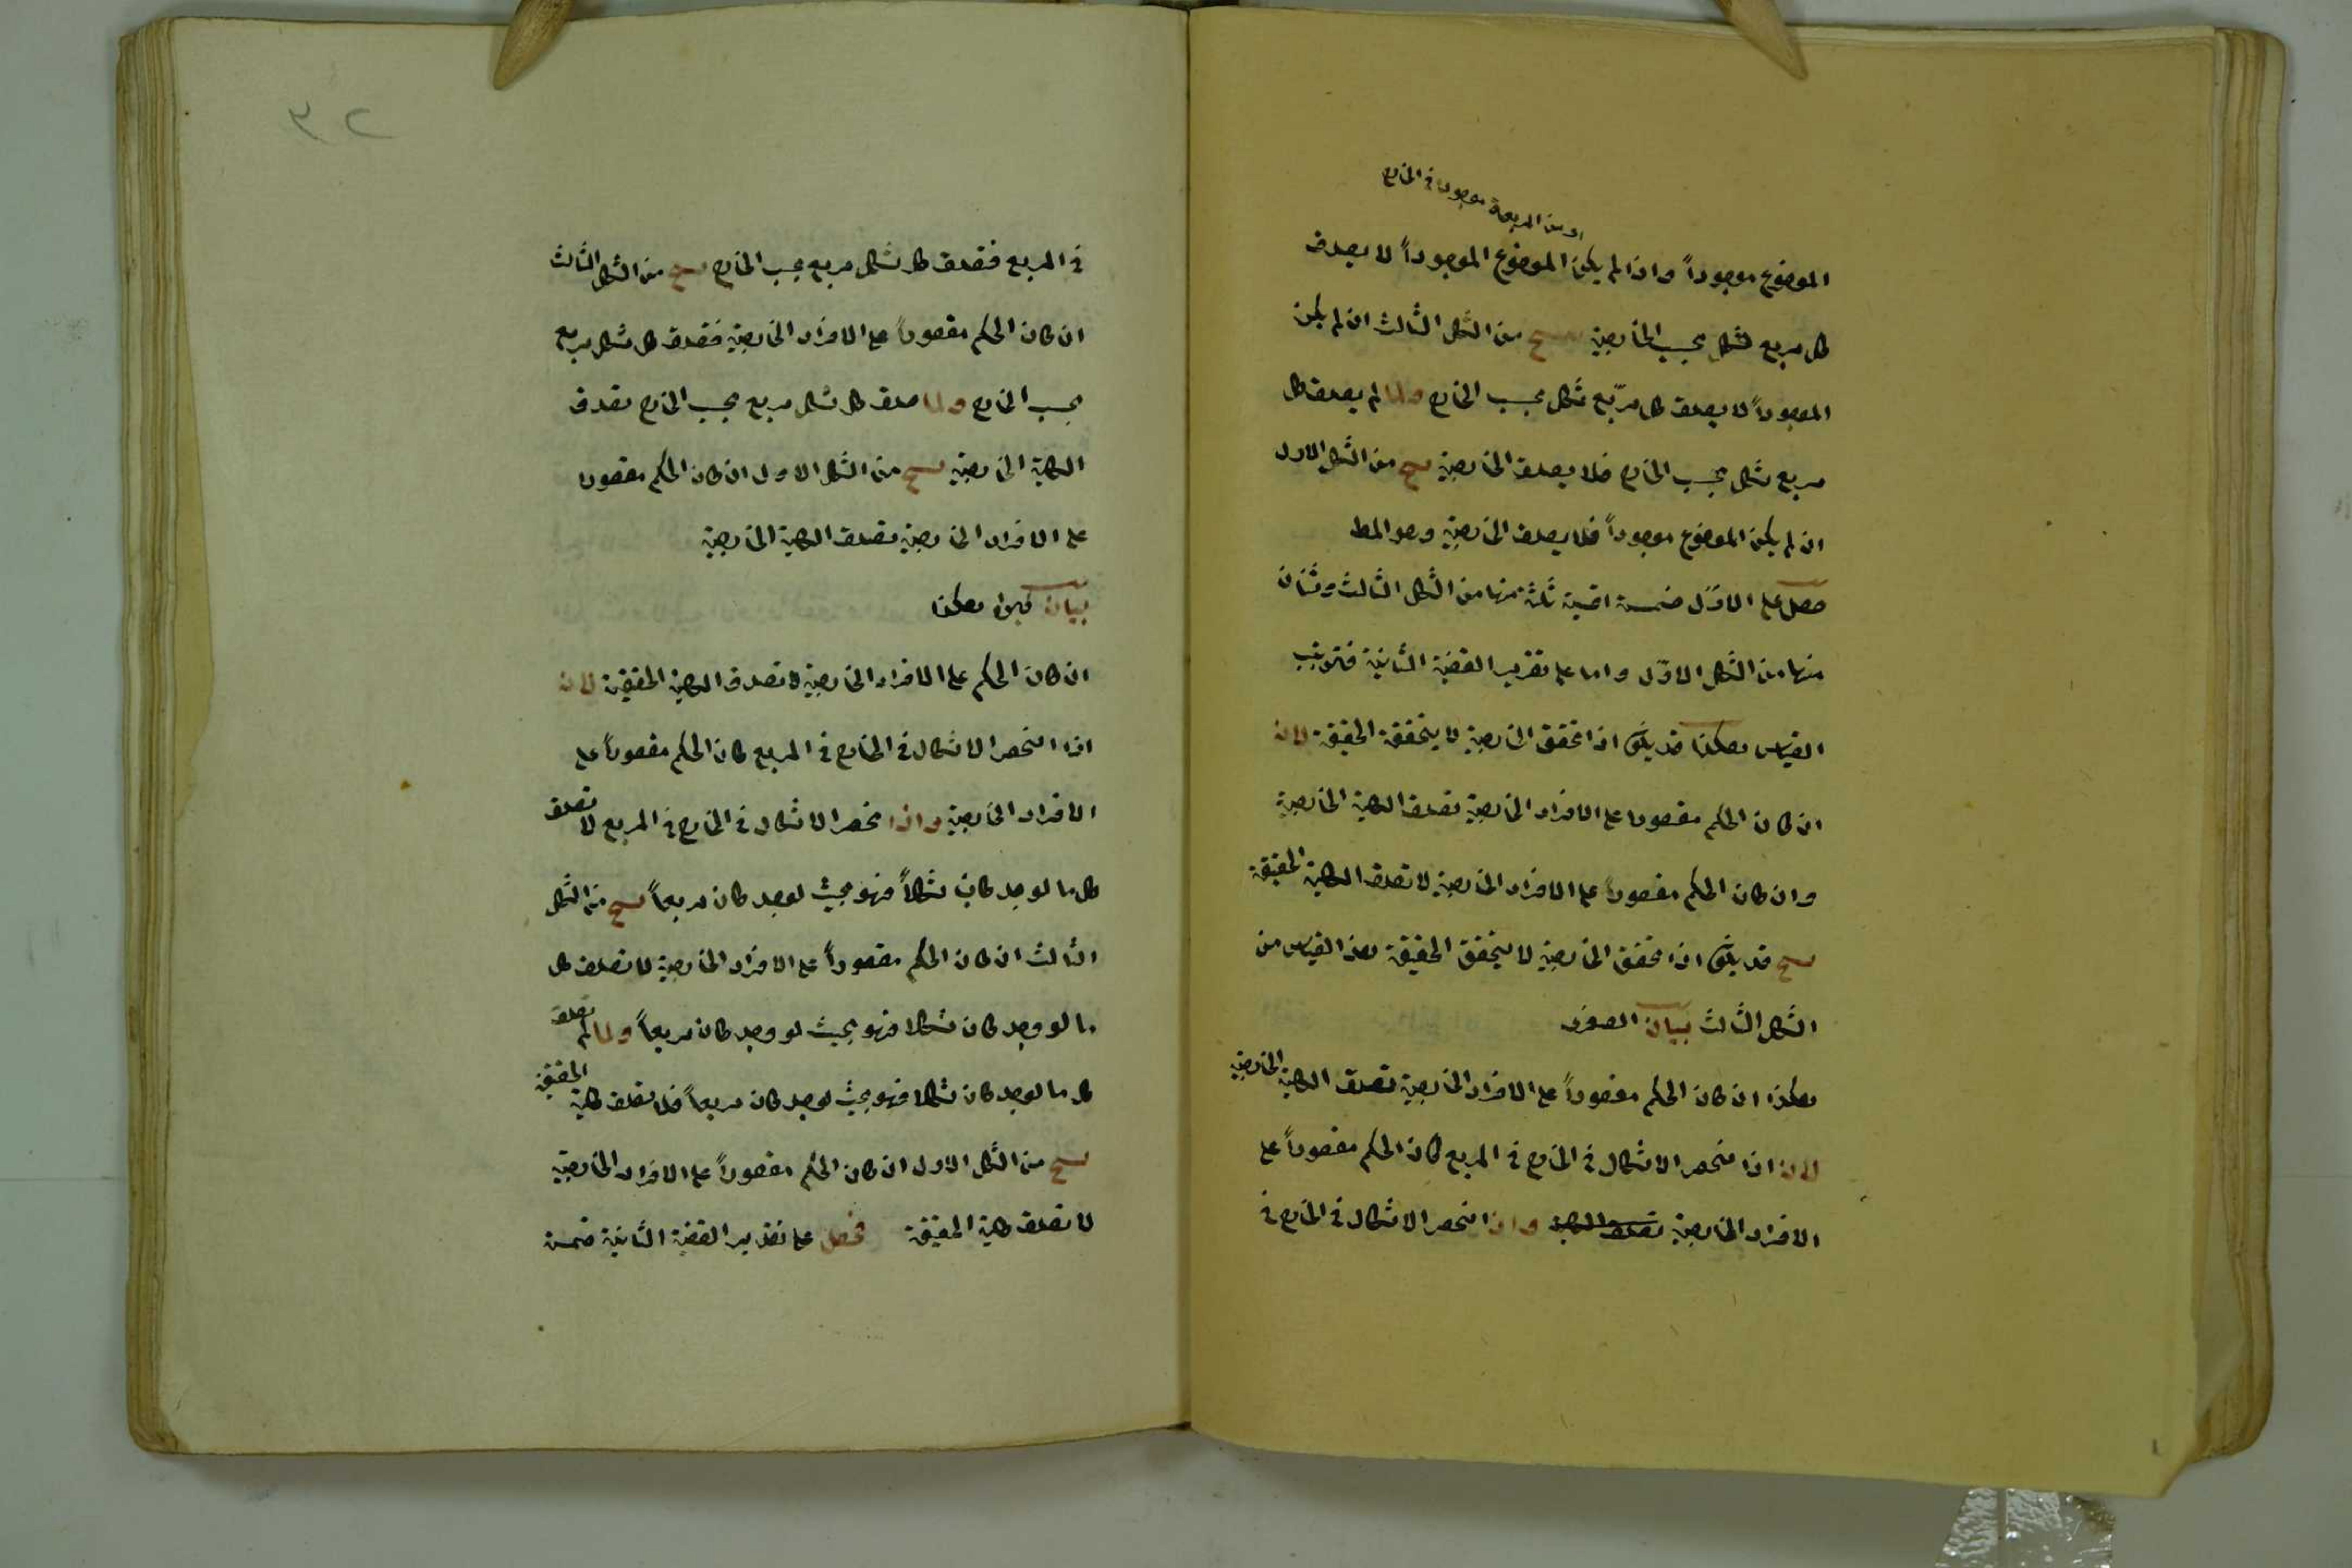 او من المربعة موجودا في الخارج
الموضوع موجوداً واذا لم يكن الموضوع الموجوداً لا يصدق
كل مربع شكل بحسب الخارجية ينتج من الشكل الثالث ان لم يكن
الموجوداً لا يصدق كل مربّع شكل بحسب الخارج ولما لم يصدق كل
مربع شكل بحسب الخارج فلا يصدق الخارجية ينتج من الشكل الاول
ان لم يكن الموضوع موجوداً فلا يصدق الخارجية وهو المط
حصل على الاوّل خمسة اقيسة ثلثة منها من الشكل الثالث وثنان
منها من الشكل الاوّل واما على تقدير القضية الثانية فترتيب
القياس هكذا قد يكون اذا تحقق الخارجية لا يتحقق الحقيقة لانه
ان كان الحكم مقصورا على الافراد الخارجية تصدق الكلية الخارجية
وان كان الحكم مقصوراً على الافراد الخارجية لا تصدق الكلية الحقيقة
ينتج قد يكون اذا تحقق الخارجية لا يتحقق الحقيقة هذا القياس من
الشكل الثالث بيان الصغرى
هكذا ان كان الحكم مقصوراً على الافراد الخارجية تصدق الكلية الخارجية
لانه اذا انحصر الاشكال في الخارج في المربع كان الحكم مقصوراً على
الافراد الخارجية تصدق الكلية واذا انحصر الاشكال في الخارج في
٣٢
في المربع فتصدق كل شكل مربع بحسب الخارج ينتج من الشكل الثالث
ان كان الحكم مقصوراً على الافراد الخارجية فتصدق كل شكل مربع
بحسب الخارج ولما صدق كل شكل مربع بحسب الخارج تصدق
الكلية الخارجية ينتج من الشكل الاول ان كان الحكم مقصورا
على الافراد الخارجية تصدق الكلية الخارجية
بيان كبرى هكذا
ان كان الحكم على الافراد الخارجية لا تصدق الكلية الحقيقية لانه
اذا انحصر الاشكال في الخارج في المربع كان الحكم مقصوراً على
الافراد الخارجية واذا انحصر الاشكال في الخارج في المربع لا تصدق
كل ما لو وجد كان شكلاً فهو بحيث لو وجد كان مربعاً ينتج من الشكل
الثالث ان كان الحكم مقصوراً على الافراد الخارجية لا تصدق كل
ما لو وجد كان شكلا فهو بحيث لو وجد كان مربعاً ولما لم تصدق
كل ما لو وجد كان شكلا فهو بحيث لو وجد كان مربعاً فلا تصدق كلية الحقيقة
ينتج من الشكل الاول ان كان الحكم مقصوراً على الافراد الخارجية
لا تصدق كلية الحقيقة فحصل على تقدير القضية الثانية خمسة